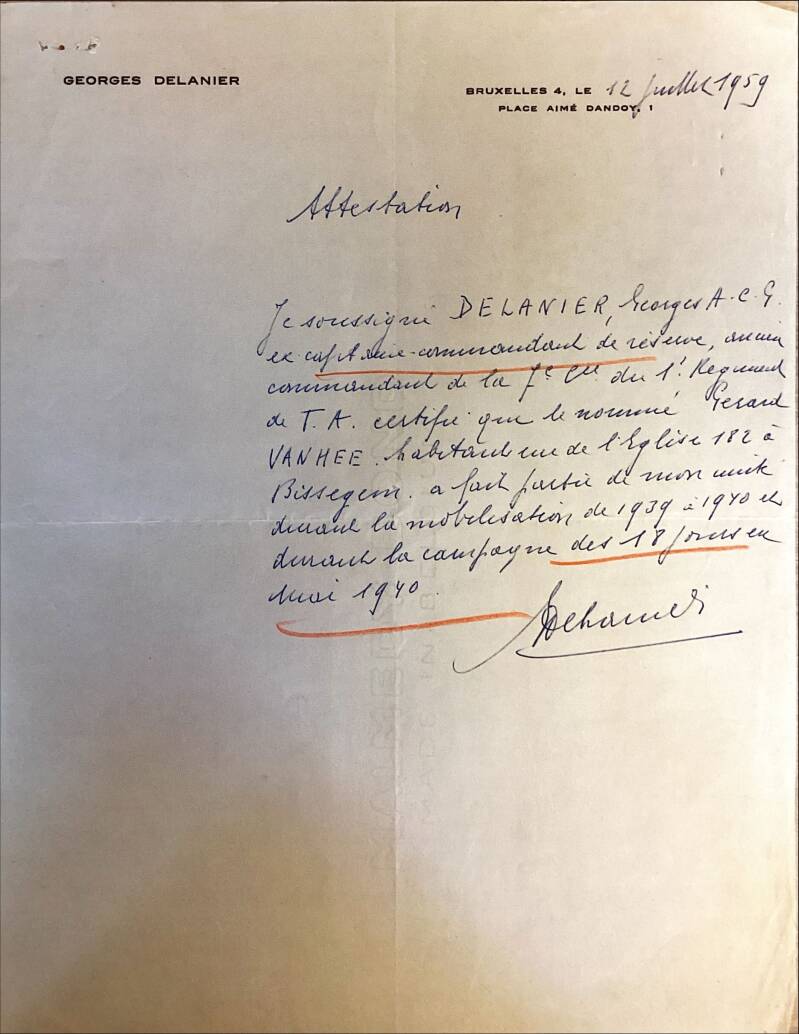 GEORGES DELANIER
BRUXELLES 4, LE 12 juillet 1959
PLACE AIMÉ DANDOY, 1
Attestation
Je soussigné DELANIER, Georges A.C.G.
ex capitaine-commandant de réserve, ancien
commandant de la 7e Cie du 1r Régiment
de T.A. certifie que le nommé Gerard
VANHEE. habitant rue de l'Eglise 182 à
Bissegem. a fait partie de mon unité
durant la mobilisation de 1939 à 1940 et
durant la campagne des 18 jours en
Mai 1940.
MADE IN